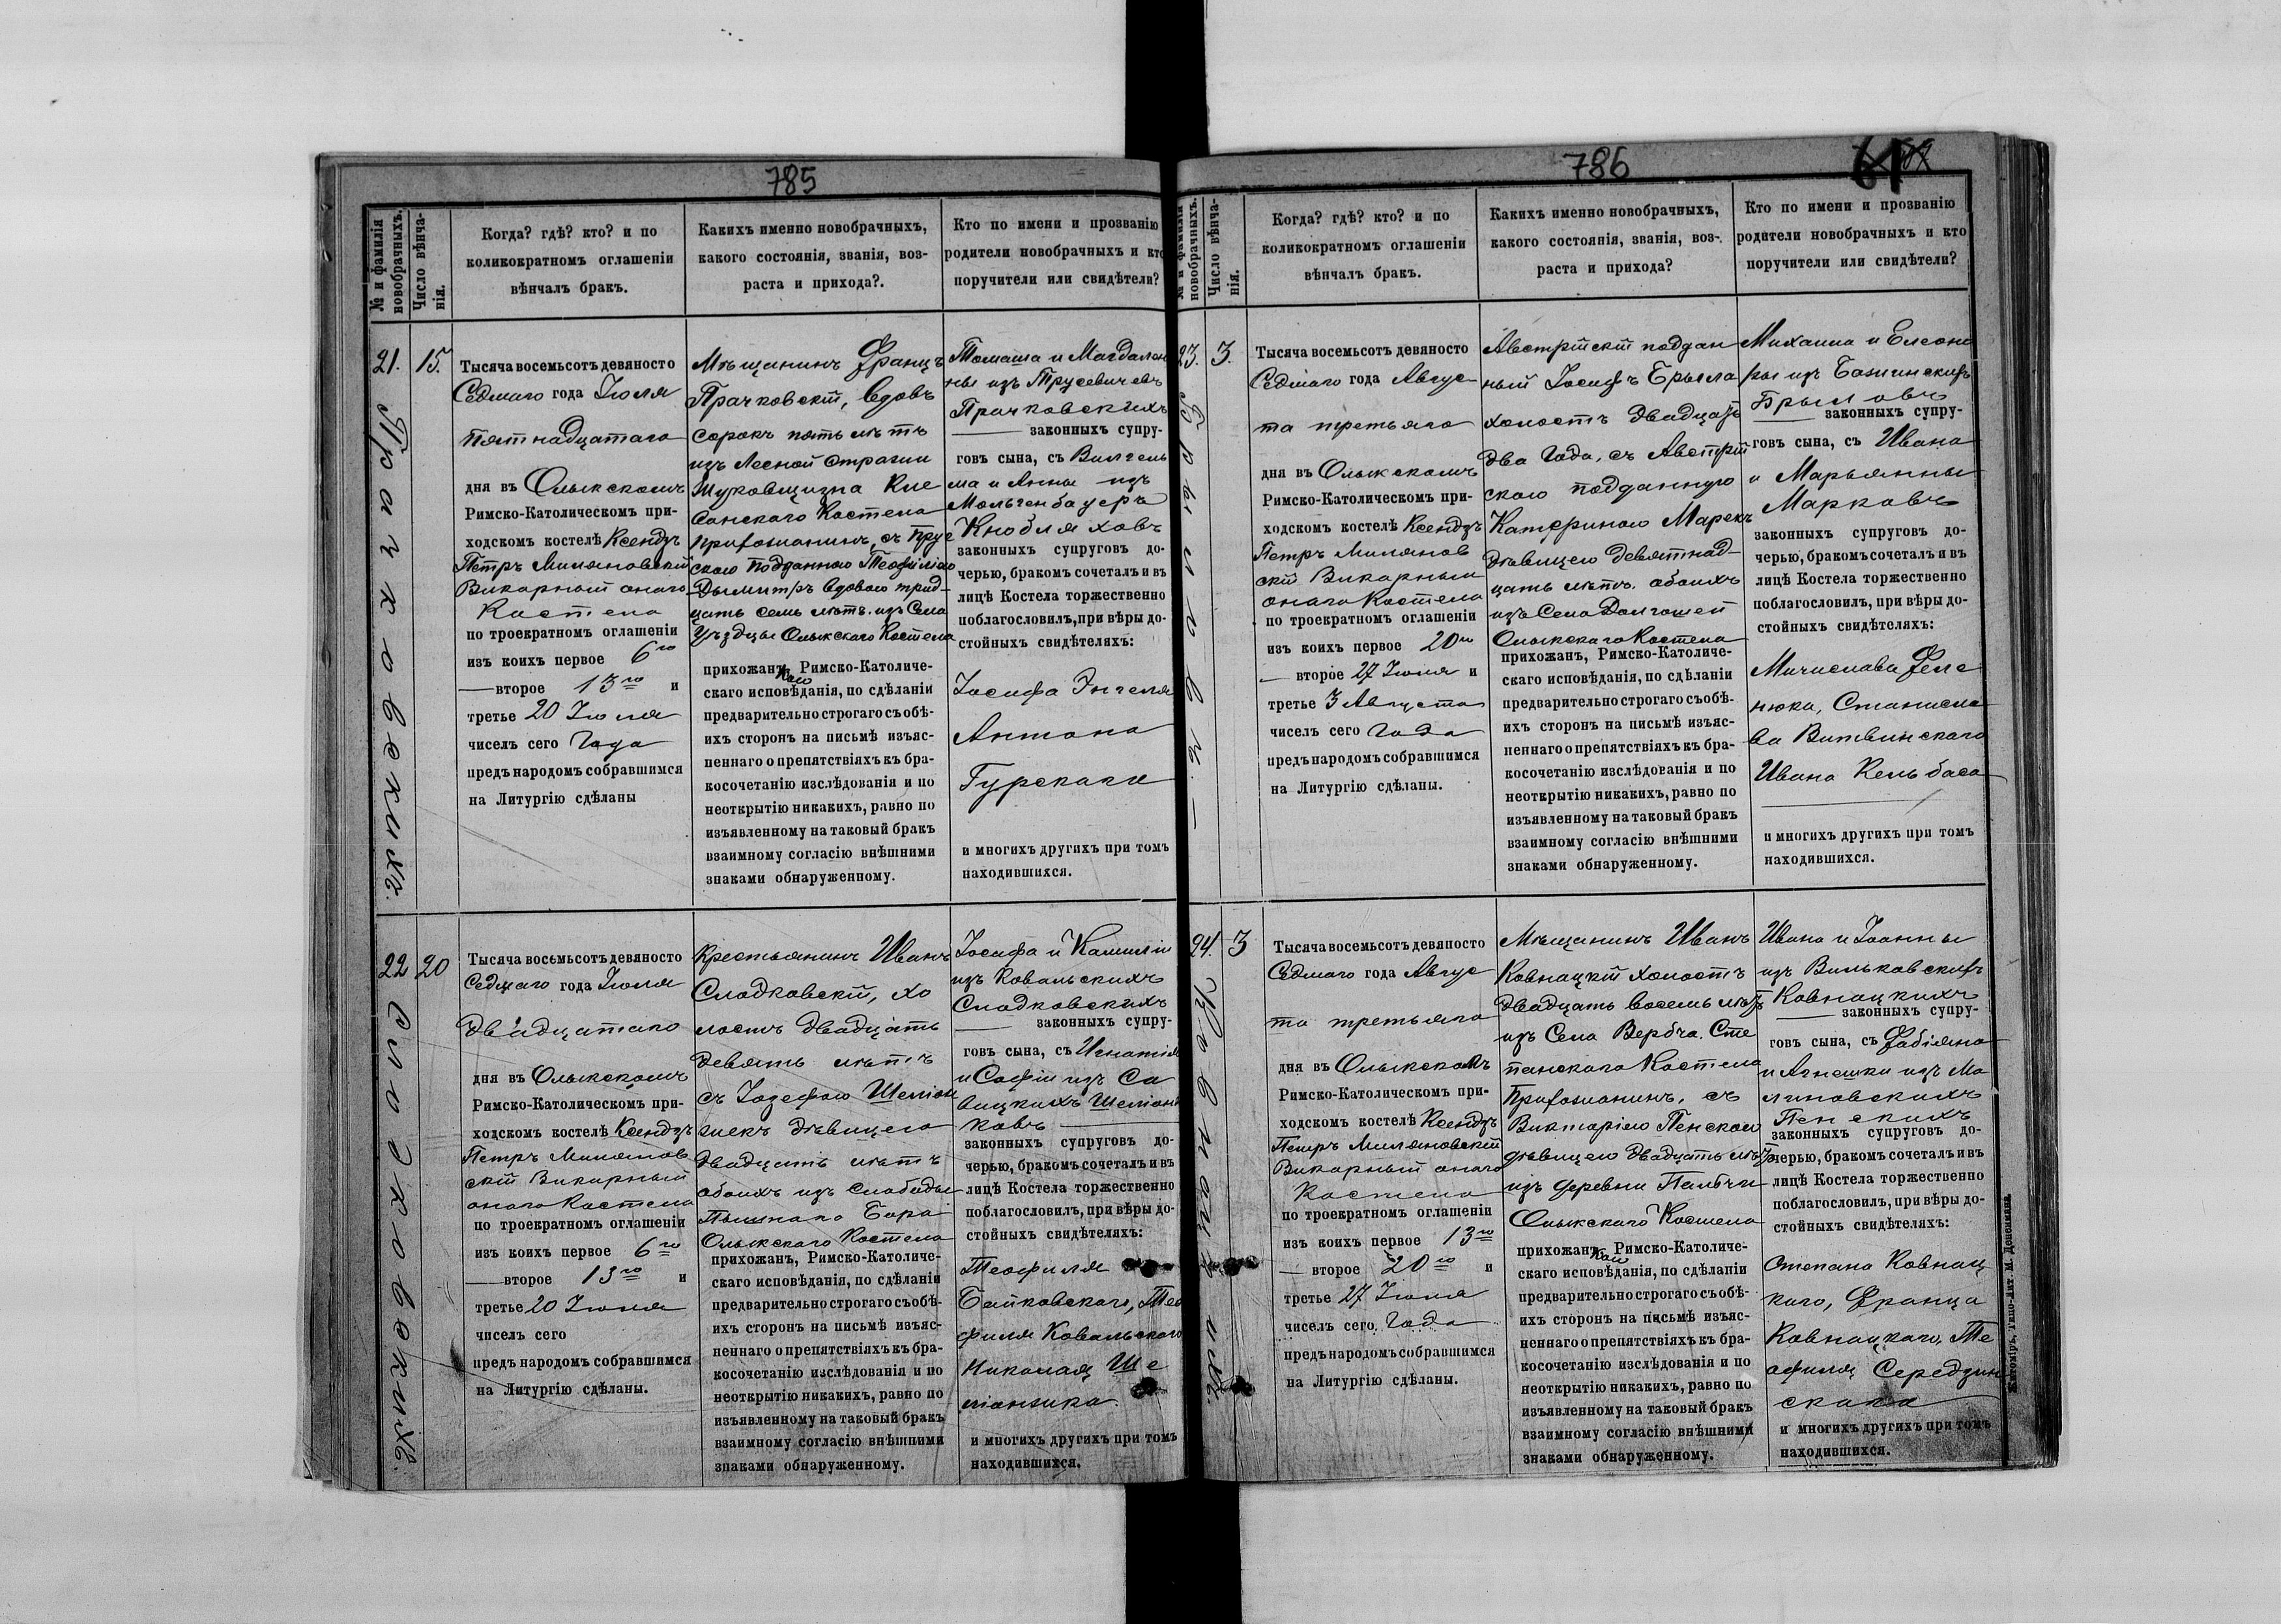 785
№ и фамилія новобрачныхъ.
Число вѣнча-
нія.
Когда? гдѣ? кто? и по
коликократномъ оглашеніи
вѣнчалъ бракъ.
Какихъ именно новобрачныхъ,
какого состоянія, званія, воз-
раста и прихода?.
Кто по имени и прозванію
родители новобрачныхъ и кто
поручители или свидѣтели?
21.
Прачковскихъ.
15.
Тысяча восемьсотъ девяносто
Седмаго года Іюля
пятнадцатаго
дня въ Олыкскомъ
Римско-Католическомъ при-
ходскомъ костелѣ Ксендзъ
Петръ Миляновскій
Викарный онаго
Костела
по троекратномъ оглашеніи
изъ коихъ первое 6го
—второе 13го и
третье 20 Іюля
чиселъ сего Года
предъ народомъ собравшимся
на Литургію сдѣланы
Мѣщанинъ Францъ
Прачковскій, вдовъ
сорокъ пять лѣтъ
изъ Лесной Стражи
Жуковщизна Кле
ванскаго Костела
прихожанинъ, съ Прус
скою подданною Теофілію
Дымитръ вдовою трид-
цать семь лѣтъ. изъ Села
Уѣздцы Олыкскаго Костела
прихожанкою Римско-Католиче-
скаго исповѣданія, по сдѣланіи
предварительно строгаго съ обѣ-
ихъ сторонъ на письмѣ изъяс-
неннаго о препятствіяхъ къ бра-
косочетанію изслѣдованія и по
неоткрытію никакихъ, равно по
изъявленному на таковый бракъ
взаимному согласію внѣшними
знаками обнаруженному.
Томаша и Магдален
ны изъ Трусевичевъ
Прачковскихъ
— законныхъ супру-
говъ сына, съ Вилгель
ма и Анны изъ
Мольченбауеръ
Кнобляховъ
законныхъ супруговъ до-
черью, бракомъ сочеталъ и въ
лицѣ Костела торжественно
поблагословилъ, при вѣры до-
стойныхъ свидѣтеляхъ:
Іосифа Энгеля
Антона
Гурскаго
и многихъ другихъ при томъ
находившихся.
22
Сладковскихъ.
20
Тысяча восемьсотъ девяносто
Седмаго года Іюля
двадцатаго
дня въ Олыкскомъ
Римско-Католическомъ при-
ходскомъ костелѣ Ксендзъ
Петръ Милянов
скій Викарный
онаго Костела
по троекратномъ оглашеніи
изъ коихъ первое 6го
—второе 13го и
третье 20 Іюля
чиселъ сего
предъ народомъ собравшимся
на Литургію сдѣланы.
Крестьянинъ Иванъ
Сладковскій, хо
лостъ двадцать
девять лѣтъ
съ Іозефою Шеліон
жекъ дѣвицею
двадцать лѣтъ
обоихъ изъ слободы
Пышнаго Бора
Олыкскаго Костела
прихожанъ, Римско-Католиче-
скаго исповѣданія, по сдѣланіи
предварительно строгаго съ обѣ-
ихъ сторонъ на письмѣ изъяс-
неннаго о препятствіяхъ къ бра-
косочетанію изслѣдованія и по
неоткрытію никакихъ, равно по
изъявленному на таковый бракъ
взаимному согласію внѣшними
знаками обнаруженному.
Іосифа и Камиліи
изъ Ковальскихъ
Сладковскихъ
— законныхъ супру-
говъ сына, съ Игнатія
и Софіи изъ Са
вицкихъ Шеліонж
ковъ
законныхъ супруговъ до-
черью, бракомъ сочеталъ и въ
лицѣ Костела торжественно
поблагословилъ, при вѣры до-
стойныхъ свидѣтеляхъ:
Теофиля
Байковскаго, Тео
филя Ковальскаго
Николая Ше
ліонжка.
и многихъ другихъ при томъ
находившихся.
786
61
№ и фамилія новобрачныхъ.
Число вѣнча-
нія.
Когда? гдѣ? кто? и по
коликократномъ оглашеніи
вѣнчалъ бракъ.
Какихъ именно новобрачныхъ,
какого состоянія, званія, воз-
раста и прихода?
Кто по имени и прозванію
родители новобрачныхъ и кто
поручители или свидѣтели?
23.
Брыловъ.
3.
Тысяча восемьсотъ девяносто
Седмаго года Авгус-
та третьяго
дня въ Олыкскомъ
Римско-Католическомъ при-
ходскомъ костелѣ Ксендзъ
Петръ Милянов
скій Викарный
онаго Костела
по троекратномъ оглашеніи
изъ коихъ первое 20го
— второе 27 Іюля и
третье 3 Августа
чиселъ сего Года
предъ народомъ собравшимся
на Литургію сдѣланы.
Австрійскій поддан
ный Іосифъ Брыла
холостъ двадцать
два года, съ Австрій
скою подданною
Катериною Марекъ
дѣвицею девятнад-
цать лѣтъ. обоихъ
изъ Села Долгошеи
Олыкскаго Костела
прихожанъ, Римско-Католиче-
скаго исповѣданія, по сдѣланіи
предварительно строгаго съ обѣ-
ихъ сторонъ на письмѣ изъяс-
неннаго о препятствіяхъ къ бра-
косочетанію изслѣдованія и по
неоткрытію никакихъ, равно по
изъявленному на таковый бракъ
взаимному согласію внѣшними
знаками обнаруженному.
Михаила и Елеоно
ры изъ Бажинскихъ
Брыловъ
— законныхъ супру-
говъ сына, съ Ивана
и Марьянны
Марковъ
законныхъ супруговъ до-
черью, бракомъ сочеталъ и въ
лицѣ Костела торжественно
поблагословилъ, при вѣры до-
стойныхъ свидѣтеляхъ:
Мичислава Феле
нюка, Станисла
ва Витвинскаго
Ивана Кельбаса
и многихъ другихъ при томъ
находившихся.
24.
Ковнацкихъ.
3
Тысяча восемьсотъ девяносто
Седмаго года Авгус
та третьяго
дня въ Олыкскомъ
Римско-Католическомъ при-
ходскомъ костелѣ Ксендзъ
Петръ Миляновскій
Викарный онаго
Костела
по троекратномъ оглашеніи
изъ коихъ первое 13го
— второе 20го и
третье 27 Іюля
чиселъ сего Года
предъ народомъ собравшимся
на Литургію сдѣланы.
Мѣщанинъ Иванъ
Ковнацкій холостъ
двадцать восемь лѣтъ
изъ Села Вербча. Сте
панскаго Костела
прихожанинъ, съ
Викторіею Пенскою
дѣвицею двадцать лѣтъ
изъ деревни Пальчи
Олыкскаго Костела
прихожанкою Римско-Католиче-
скаго исповѣданія, по сдѣланіи
предварительно строгаго съ обѣ-
ихъ сторонъ на письмѣ изъяс-
неннаго о препятствіяхъ къ бра-
косочетанію изслѣдованія и по
неоткрытію никакихъ, равно по
изъявленному на таковый бракъ
взаимному согласію внѣшними
знаками обнаруженному.
Ивана и Іоанны
изъ Вильковскихъ
Ковнацкихъ
— законныхъ супру-
говъ сына, съ Фабіяна
и Агнешки изъ Ма
линовскихъ
Пенскихъ
законныхъ супруговъ до-
черью, бракомъ сочеталъ и въ
лицѣ Костела торжественно
поблагословилъ, при вѣры до-
стойныхъ свидѣтеляхъ:
Степана Ковнац
каго, Франца
Ковнацкаго, Те
офиля Середзин
скаго
и многихъ другихъ при томъ
находившихся.
Житоміръ, Типо-Лит. М. Дененмана.